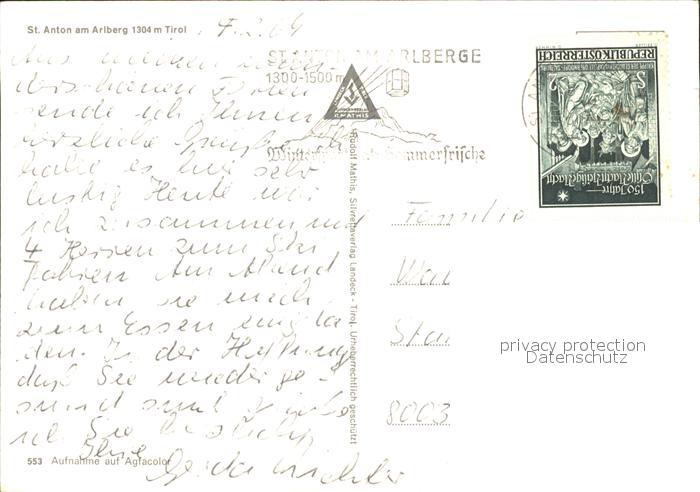 St. Anton am Arlberg 1304 m Tirol
Aus meinen
sende ich Ihnen
herzliche Grüße. Ich
halte es hier sehr
lustig Heute war
ich zusammen mit
4 Herren zum Ski
Fahren Am Abend
haben sie mich
zum Essen eingela
den. In der Hoffnung
daß Sie wieder ge-
sund sind
Sie herzlich
Ihre
553 Aufnahme auf Agfacolor
ST. ANTON AM ARLBERGE
1300-1500 m
R. MATHIS
Winter Sommerfrische
Rudolf Mathis, Silvrettaverlag Landeck - Tirol. Urheberrechtlich geschützt
REPUBLIK ÖSTERREICH
150 Jahre
Stille Nacht, heilige Nacht
Familie
8003
privacy protection
Datenschutz